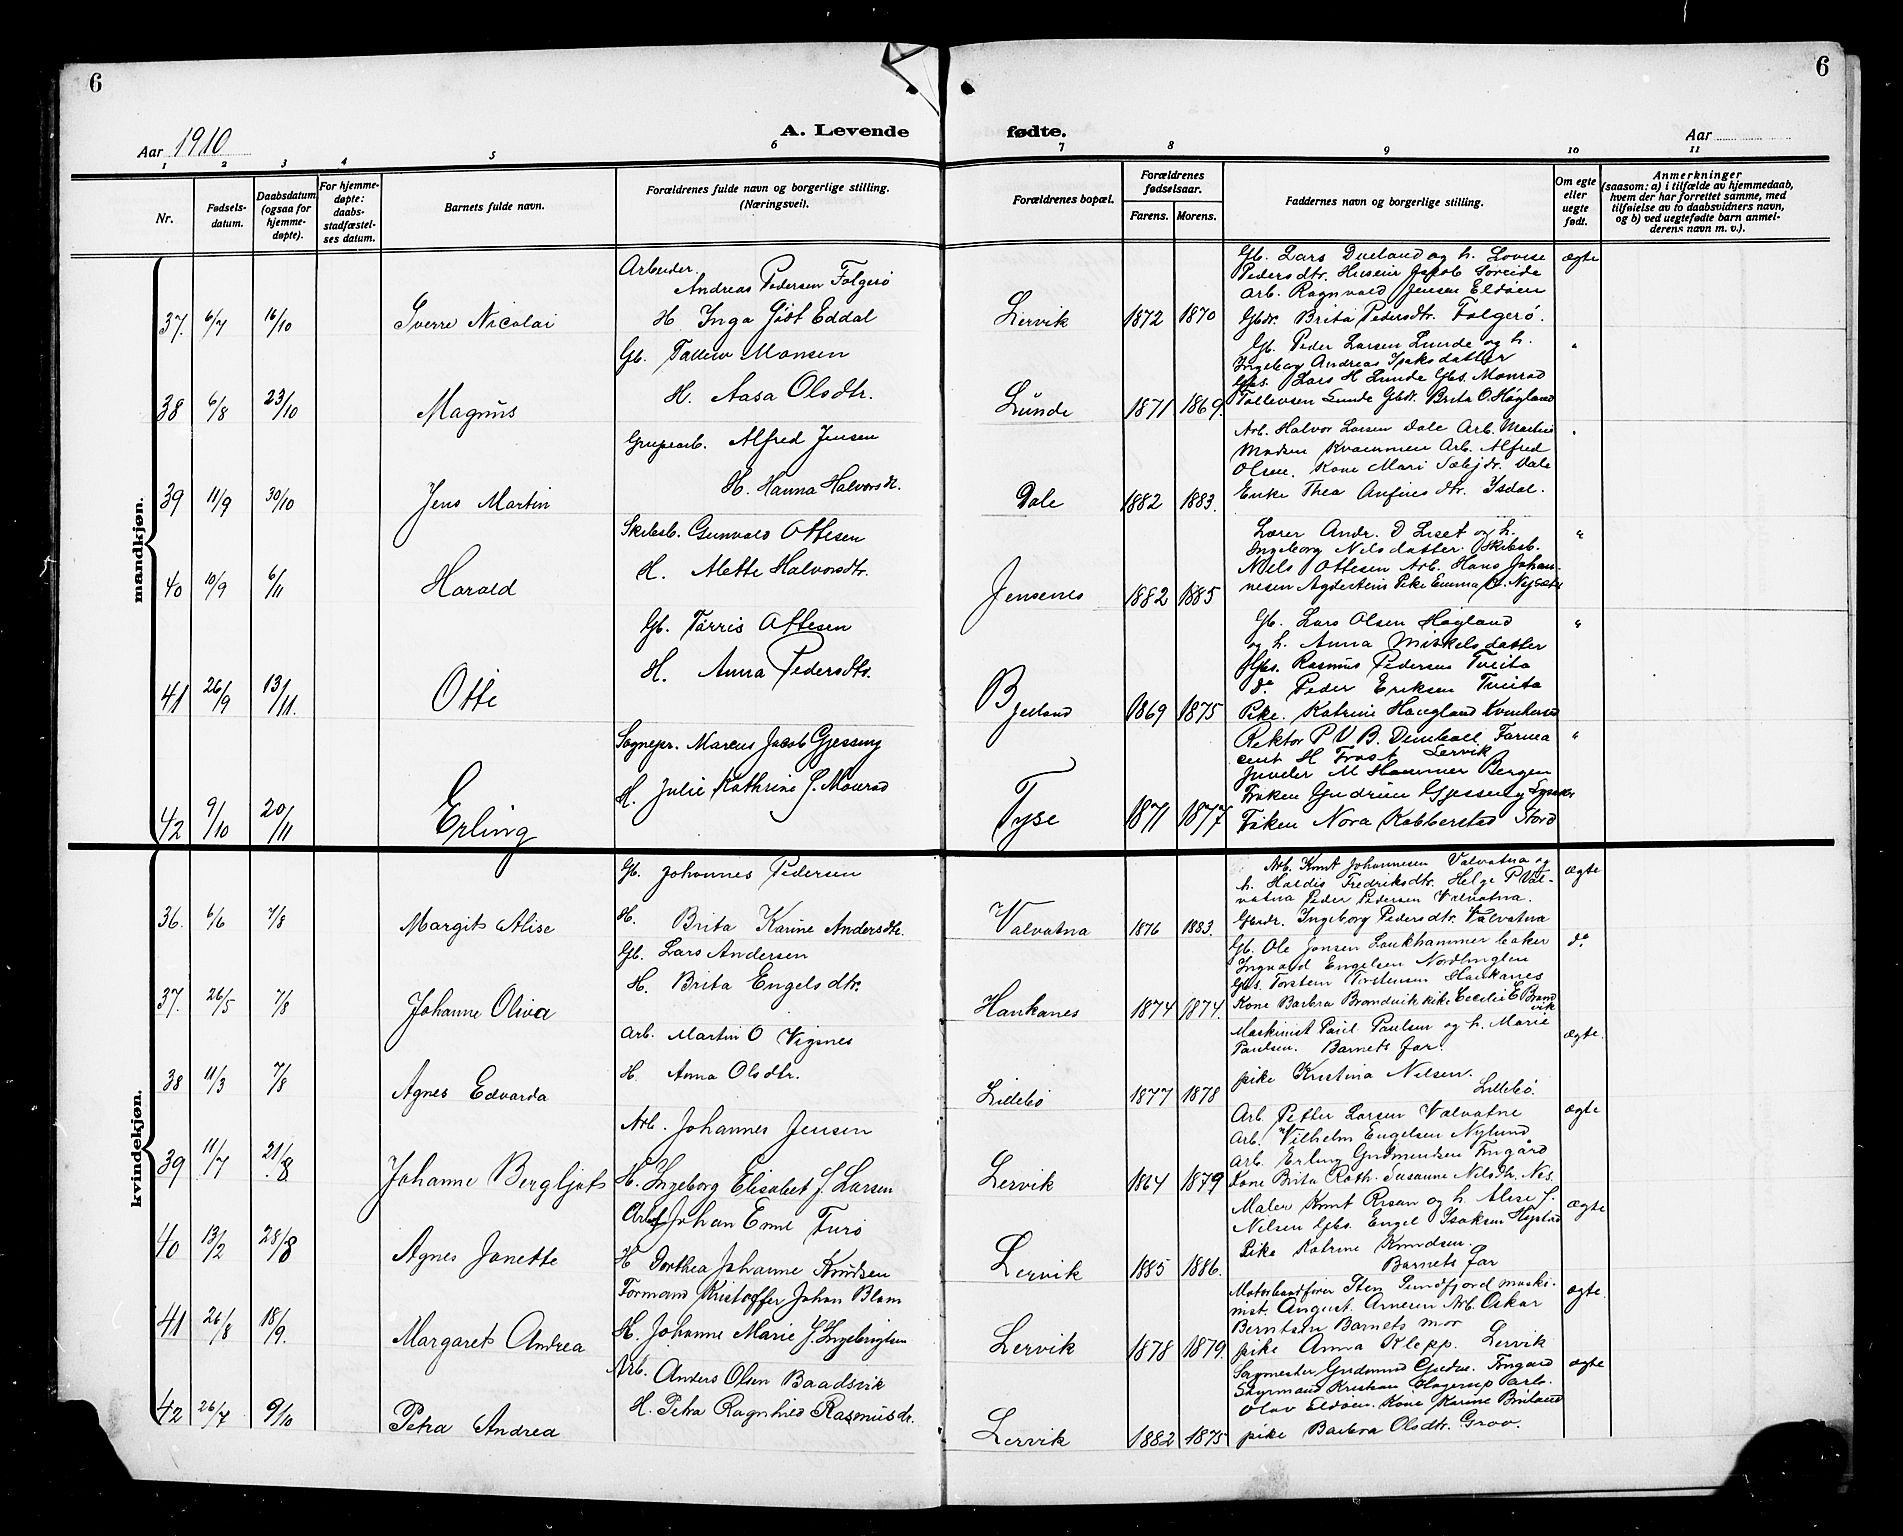 6
6
Aar 1910
A. Levende
fødte.
Aar
1
2
3
4
5
6
7
8
9
10
11
Nr.
Fødsels-
datum.
Daabsdatum
(ogsaa for
hjemme-
døpte).
For hjemme-
døpte:
daabs-
stadfæstel-
ses datum.
Barnets fulde navn.
Forældrenes fulde navn og borgerlige stilling.
(Næringsvei).
Forældrenes bopæl.
Forældrenes
fødselsaar.
Farens.
Morens.
Faddernes navn og borgerlige stilling.
Om egte
eller
uegte
født.
Anmerkninger
(saasom: a) i tilfælde av hjemmedaab,
hvem der har forrettet samme, med
tilføielse av to daabsvidners navn,
og b) ved uegtefødte barn anmel-
derens navn m. v.).
mandkjøn.
37. 6/7 16/10 Sverre Nicolai
Arbeider.
Andreas Pedersen Folgerø
H. Inga Gjøt Eddal
Lervik 1872 1870
Gb. Lars Dueland og h. Lovise
Pedersdtr. Jacob Soreide
Arb. Ragnvald Jensen Eldøen
Gbdr. Brita Pedersdtr. Folgerø.
ægte
38 6/8 23/10 Magnus
Gb. Tallew Monsen
H. Aasa Olsdtr.
Lunde 1871 1869.
Gb. Peder Larsen Lunde og h.
Ingeborg Andreas Isaksdatter
Gbs. Lars H Lunde Gbs. Monrad
Tollevsen Lunde Gbdr. Brita O. Høgland
"
39 11/9 30/10 Jens Martin
Grupearb. Alfred Jensen
H. Hanna Halvorsdtr.
Dale 1882 1883.
Arb. Halvor Larsen Dale Arb. Martin
Madsen Kvammen Arb. Alfred
Olsen. Kone Mari Dale
Enke Thea Anfinsdtr. Isdal.
"
40 10/9 6/11 Harald
Skibsb. Gunvald Ottesen
H. Mette Halvorsdtr.
Jensenes 1882 1885
Lærer Andr. D Liset og h.
Ingeborg Nilsdatter. Skibsb.
Nils Ottesen Arb. Hans Johan-
nesen Agdestein Pike Emma
"
41 26/9 13/11. Otte
Gb. Tørris Ottesen
H. Anna Pedersdtr.
Bjelland 1869 1875
Gb. Lars Olsen Høgland
og h. Anna Mikkelsdatter
Gbs. Rasmus Pedersen Tveita
do Peder Eriksen Tveita
Pike. Katrine Haugland
"
42 9/10 20/11 Erling
Sognepr. Marcus Jacob Gjessing
H. Julie Kathrine S. Monrad
Tyse 1871 1877
Rektor P V B. Farma
cent H Frost Lervik
Juveler M Hammer Bergen
Frøken Gudrun Gjessing
Frøken Nora Kobberstad Stord
"
kvindekjøn.
36. 6/6 7/8 Margit Alise
Gb. Johannes Pedersen
H. Brita Karine Andersdtr.
Valvatna 1876 1883.
Arb. Knut Johannesen Valvatna og
h. Haldis Fredriksdtr. Helge P Val-
vatna Peder Pedersen Valvatna.
Gbdr. Ingeborg Pedersdtr. Valvatna
ægte
37. 26/5 7/8 Johanne Oliva
Gb. Lars Andersen
H. Brita Engelsdtr.
Haukanes 1874 1874.
Gb. Ole Jonsen Laukhammer baker
Ingvald Engelsen
Gbs. Torstein Torstensen Haukanes
Kone Barbra Brandvik pike Cecilie E Brand
vik
do
38 11/3 7/8 Agnes Edvarda
Arb. Martin O Vigsnes
H. Anna Olsdtr.
Lillebø 1877 1878
Maskinist Paul Paulsen og h. Marie
Paulsen. Barnets far.
pike Kristina Nilsen.
Lillebø.
ægte.
39 11/7 21/8 Johanne Bergljot
Arb. Johannes Jensen
H. Ingeborg Elisabet J Larsen
Lervik 1864 1879
Arb. Petter Larsen Valvatne
Arb. Vilhelm Engelsen Nylund
Arb. Erling Gudmundsen Frugård
Kone Brita Roth. Susanne Nilsdtr. Nes.
ægte
40 13/2 28/8 Agnes Janette
Arb. Johan Emil Turo
H Dorthea Johanne Knudsen
Lervik 1885 1886.
Maler Knut Risan og h. Alise J.
Nilsen Gbs. Engel Isaksen Hystad
Pike Katrine Knudsen.
Barnets far
ægte
41 26/8 18/9. Margaret Andrea
Formand Kristoffer Johan Blom
H. Johanne Marie J. Ingebrigtsen
Lervik 1878 1879.
Motorbaadfører Sten Sundfjord maski-
nist. August Arnesen Arb. Oskar
Berntsen Barnets mor
pike Anna Klepp. Lervik
ægte.
42 26/7 9/10 Petra Andrea
Arb. Anders Olsen Baadsvik
H. Petra Ragnhild Rasmusdr.
Lervik 1882 1875
Sagmester Gudmund Frugård
Styrmand Kristian Hagerup Arb.
Olav Eldøen. Kone Karine
pike Barbra Olsdtr. Grov.
ægte